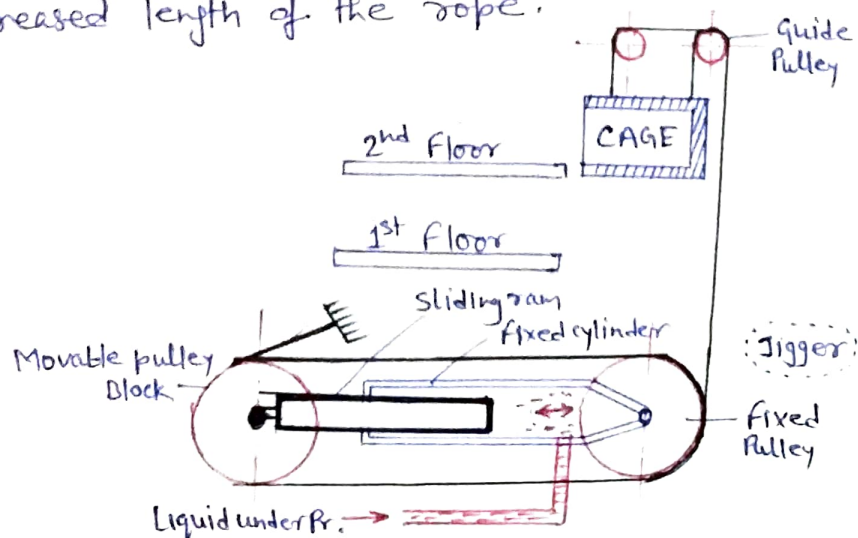 reased length of the rope.
Guide
Pulley
CAGE
2nd Floor
1st Floor
Sliding ram
fixed cylinder
Movable pulley
Block
Jigger
fixed
Pulley
Liquid under Pr.